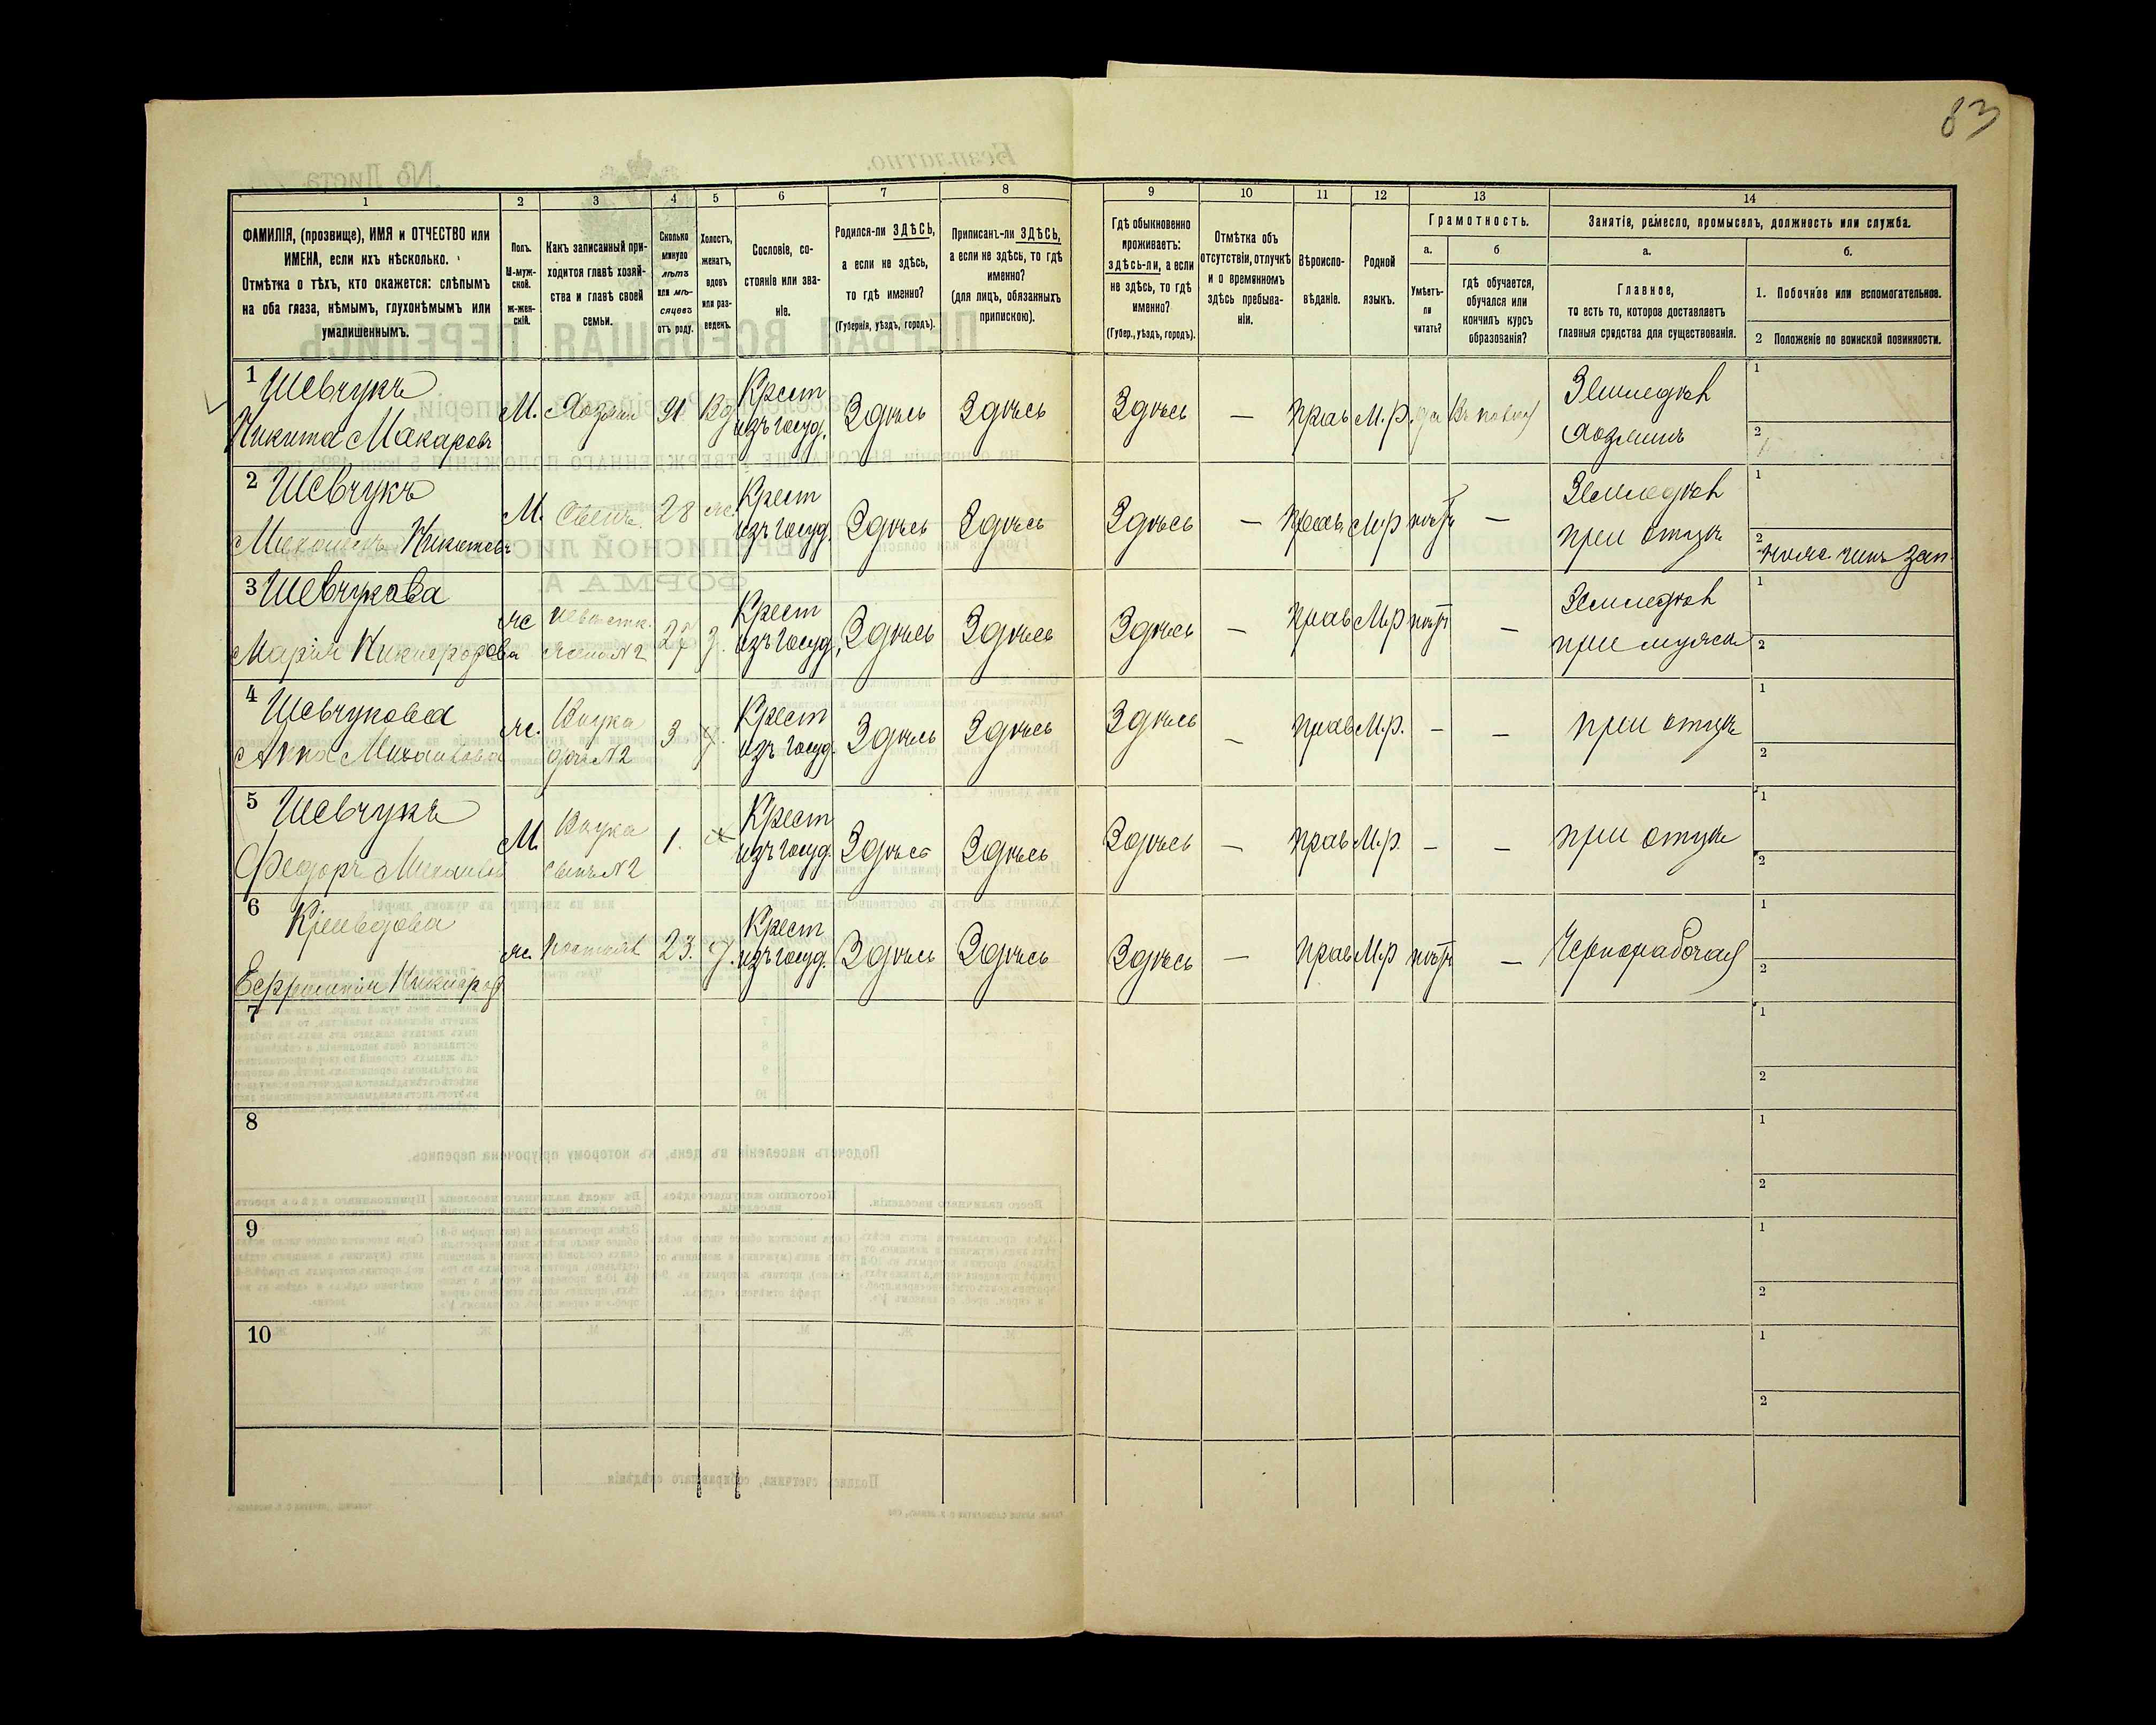 83
1 2 3 4 5 6 7 8 9 10 11 12 13 14
ФАМИЛІЯ, (прозвище), ИМЯ и ОТЧЕСТВО или
ИМЕНА, если ихъ нѣсколько.
Отмѣтка о тѣхъ, кто окажется: слѣпымъ
на оба глаза, нѣмымъ, глухонѣмымъ или
умалишеннымъ.
Полъ.
М-муж-
ской.
ж-жен-
скій.
Какъ записанный при-
ходится главѣ хозяй-
ства и главѣ своей
семьи.
Сколько
минуло
лѣтъ
или мѣ-
сяцевъ
отъ роду.
Холостъ,
женатъ,
вдовъ
или раз-
веденъ.
Сословіе, со-
стояніе или зва-
ніе.
Родился-ли ЗДѢСЬ,
а если не здѣсь,
то гдѣ именно?
(Губернія, уѣздъ, городъ).
Приписанъ-ли ЗДѢСЬ,
а если не здѣсь, то гдѣ
именно?
(для лицъ, обязанныхъ
припискою).
Гдѣ обыкновенно
проживаетъ:
здѣсь-ли, а если
не здѣсь, то гдѣ
именно?
(Губер., уѣздъ, городъ).
Отмѣтка объ
отсутствіи, отлучкѣ
и о временномъ
здѣсь пребыва-
ніи.
Вѣроиспо-
вѣданіе.
Родной
языкъ.
Грамотность.
а.
Умѣетъ-
ли
читать?
б
гдѣ обучается,
обучался или
кончилъ курсъ
образованія?
Занятіе, ремесло, промыселъ, должность или служба.
а.
Главное,
то есть то, которое доставляетъ
главныя средства для существованія.
б.
1. Побочное или вспомогательное.
2 Положеніе по воинской повинности.
1 Шевчукъ
Никита Макаровъ
М. Хозяин 91 Вд Крест
изъ госуд.
Здѣсь Здѣсь Здѣсь — прав М.р. да
Земледѣл
Хозяинъ
1
2
2 Шевчукъ
Никитовъ
М. Сынъ. 28 ж. Крест
изъ госуд.
Здѣсь Здѣсь Здѣсь — прав. М.р нѣтъ —
Земледѣл
при отцѣ
1
2
чинъ зап.
3 Шевчукова
Марія Никифорова
ж невѣстк.
жена №2
27 з. Крест
изъ госуд.
Здѣсь Здѣсь Здѣсь — прав М.р нѣтъ —
Земледѣл
при мужѣ
1
2
4 Шевчукова
Анна Михаилова
ж. Внука
дочь №2
3 Крест
изъ госуд.
Здѣсь Здѣсь Здѣсь — прав М.р. — —
при отцѣ
1
2
5 Шевчукъ
Федоръ Михаилов
М. Внука
сынъ №2
1. х Крест
изъ госуд.
Здѣсь Здѣсь Здѣсь — прав М.р. — —
при отцѣ
1
2
6
Никифор
ж. 23. Крест
изъ госуд.
Здѣсь Здѣсь Здѣсь — прав М.р нѣтъ —
Чернорабочая
1
2
7
1
2
8
1
2
9
1
2
10
1
2